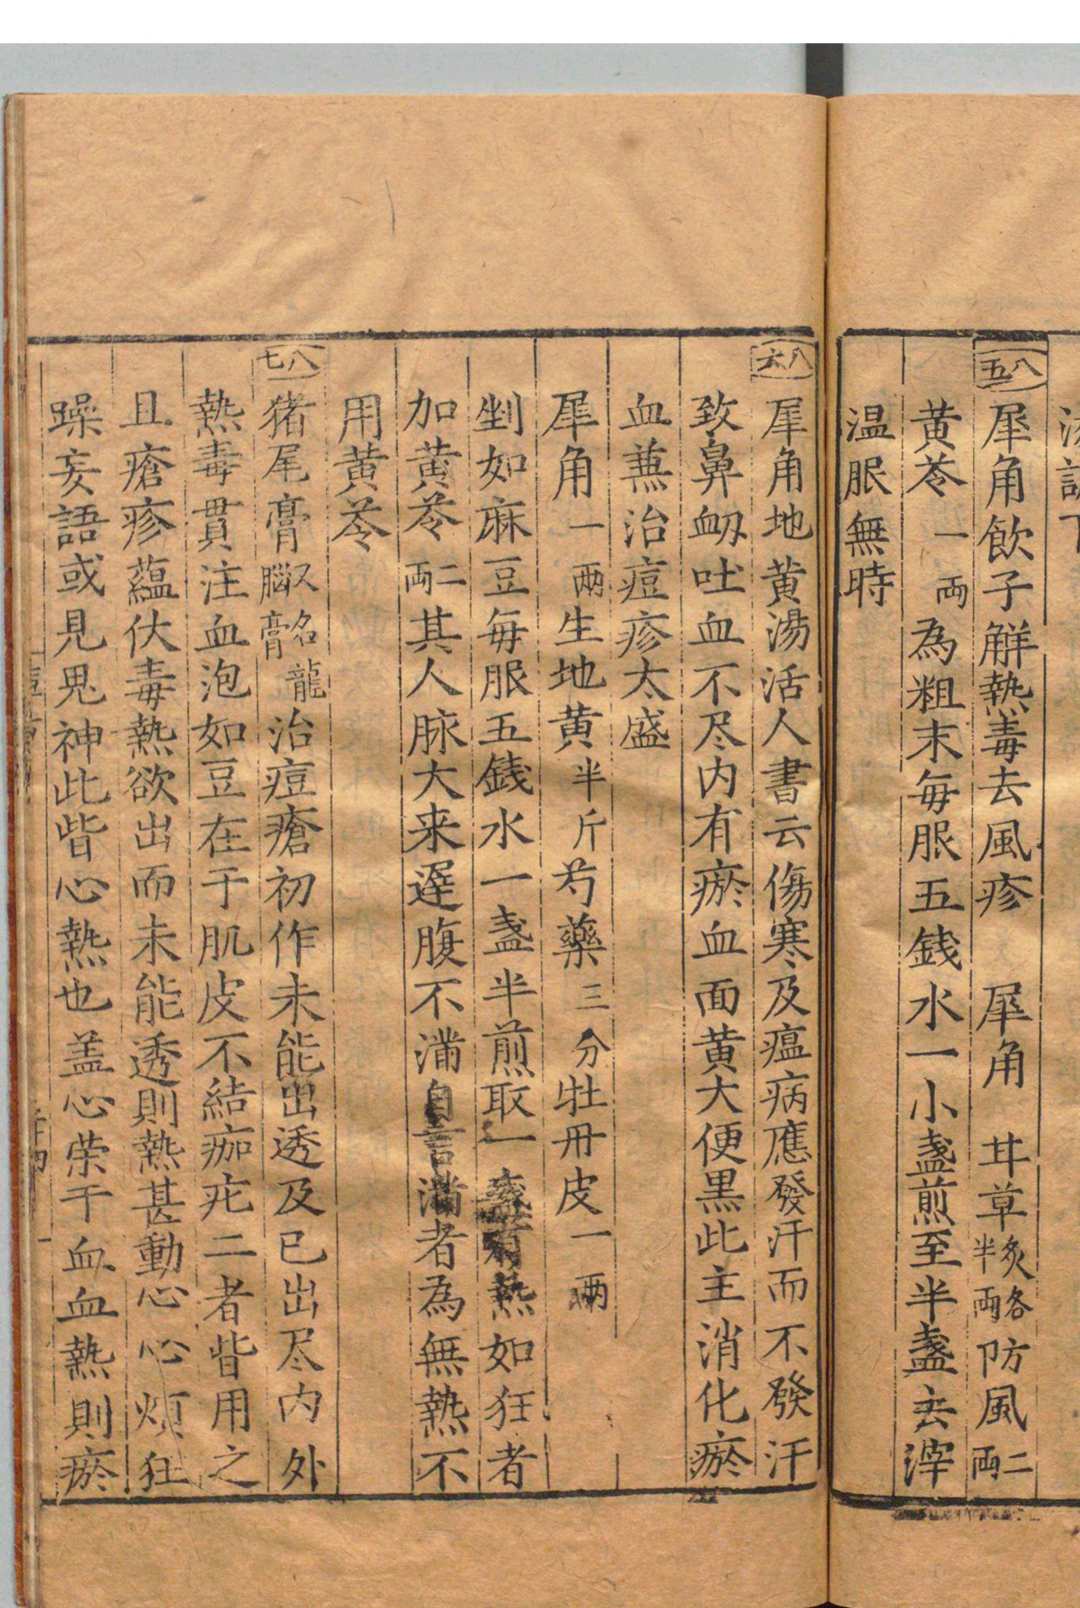 八五
犀角飲子解熱毒去風疹　犀角　甘草炙各半兩防風二兩
黄芩一兩為粗末毎服五錢水一小盞煎至半盞去滓
温服無時
八六
犀角地黄湯活人書云傷寒及瘟病應發汗而不發汗
致鼻衂吐血不尽内有瘀血面黄大便黒此主消化瘀
血兼治痘疹太盛
犀角一兩生地黄半斤芍藥三分牡丹皮一兩
剉如麻豆毎服五錢水一盞半煎取一盞有熱如狂者
加黄芩二兩其人脉大来遅腹不滿自言滿者為無熱不
用黄芩
八七
猪尾膏又名龍腦膏治痘瘡初作未能出透及已出尽内外
熱毒貫注血泡如豆在于肌皮不結痂疕二者皆用之
且瘡疹蘊伏毒熱欲出而未能透則熱甚動心心煩狂
躁妄語或見鬼神此皆心熱也盖心荣于血血熱則瘀